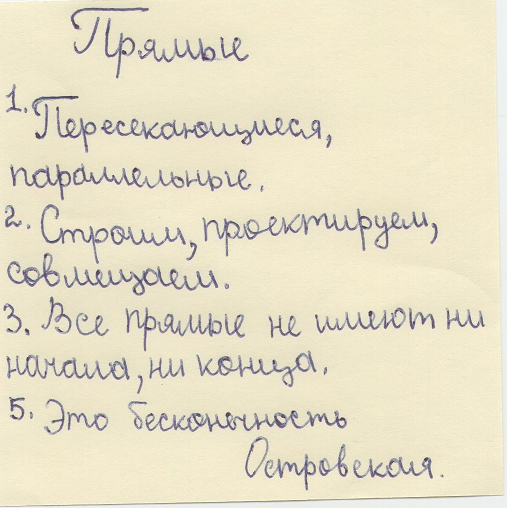 Прямые
1. Пересекающиеся,
параллельные.
2. Строим, проектируем,
совмещаем.
3. Все прямые не имеют ни
начала, ни конца.
5. Это бесконечность
Островская.